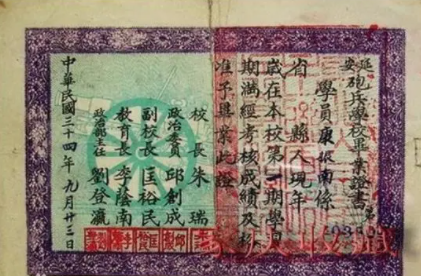 延安砲兵學校畢業證書 第
學員康振南係
省 縣人現年
歲在本校第一期學員
期滿經考核成績及格
准予畢業此證
校長朱瑞
政治委員邱創成
副校長匡裕民
教育長李蔭南
政治部主任劉登瀛
中華民國三十四年九月廿三日